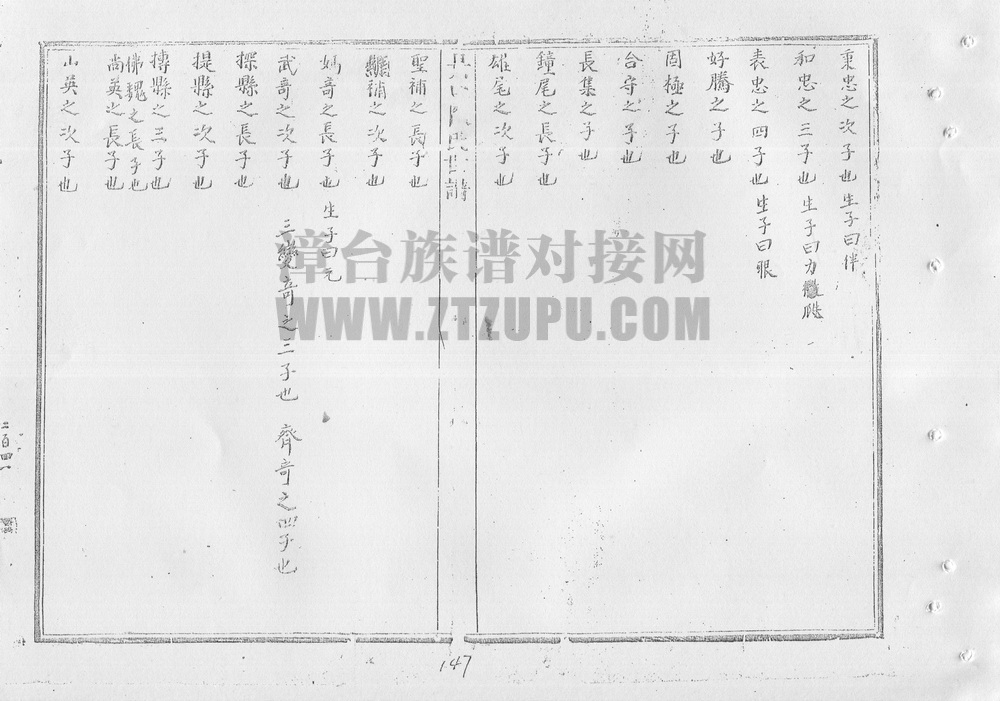 秉忠之次子也生子曰伴
和忠之三子也生子曰力 眺
表忠之四子也生子曰眼
好騰之子也
固極之子也
台守之子也
長集之子也
鐘尾之長子也
雄尾之次子也
聖補之長子也
繼補之次子也
媽奇之長子也生子曰元
武奇之次子也 三變奇之三子也 齊奇之四子也
探縣之長子
提縣之次子也
摶縣之三子也
佛魏之長子也
尚英之長子也
山英之次子也
二百四一
147
漳台族谱对接网
WWW.ZTZUPU.COM